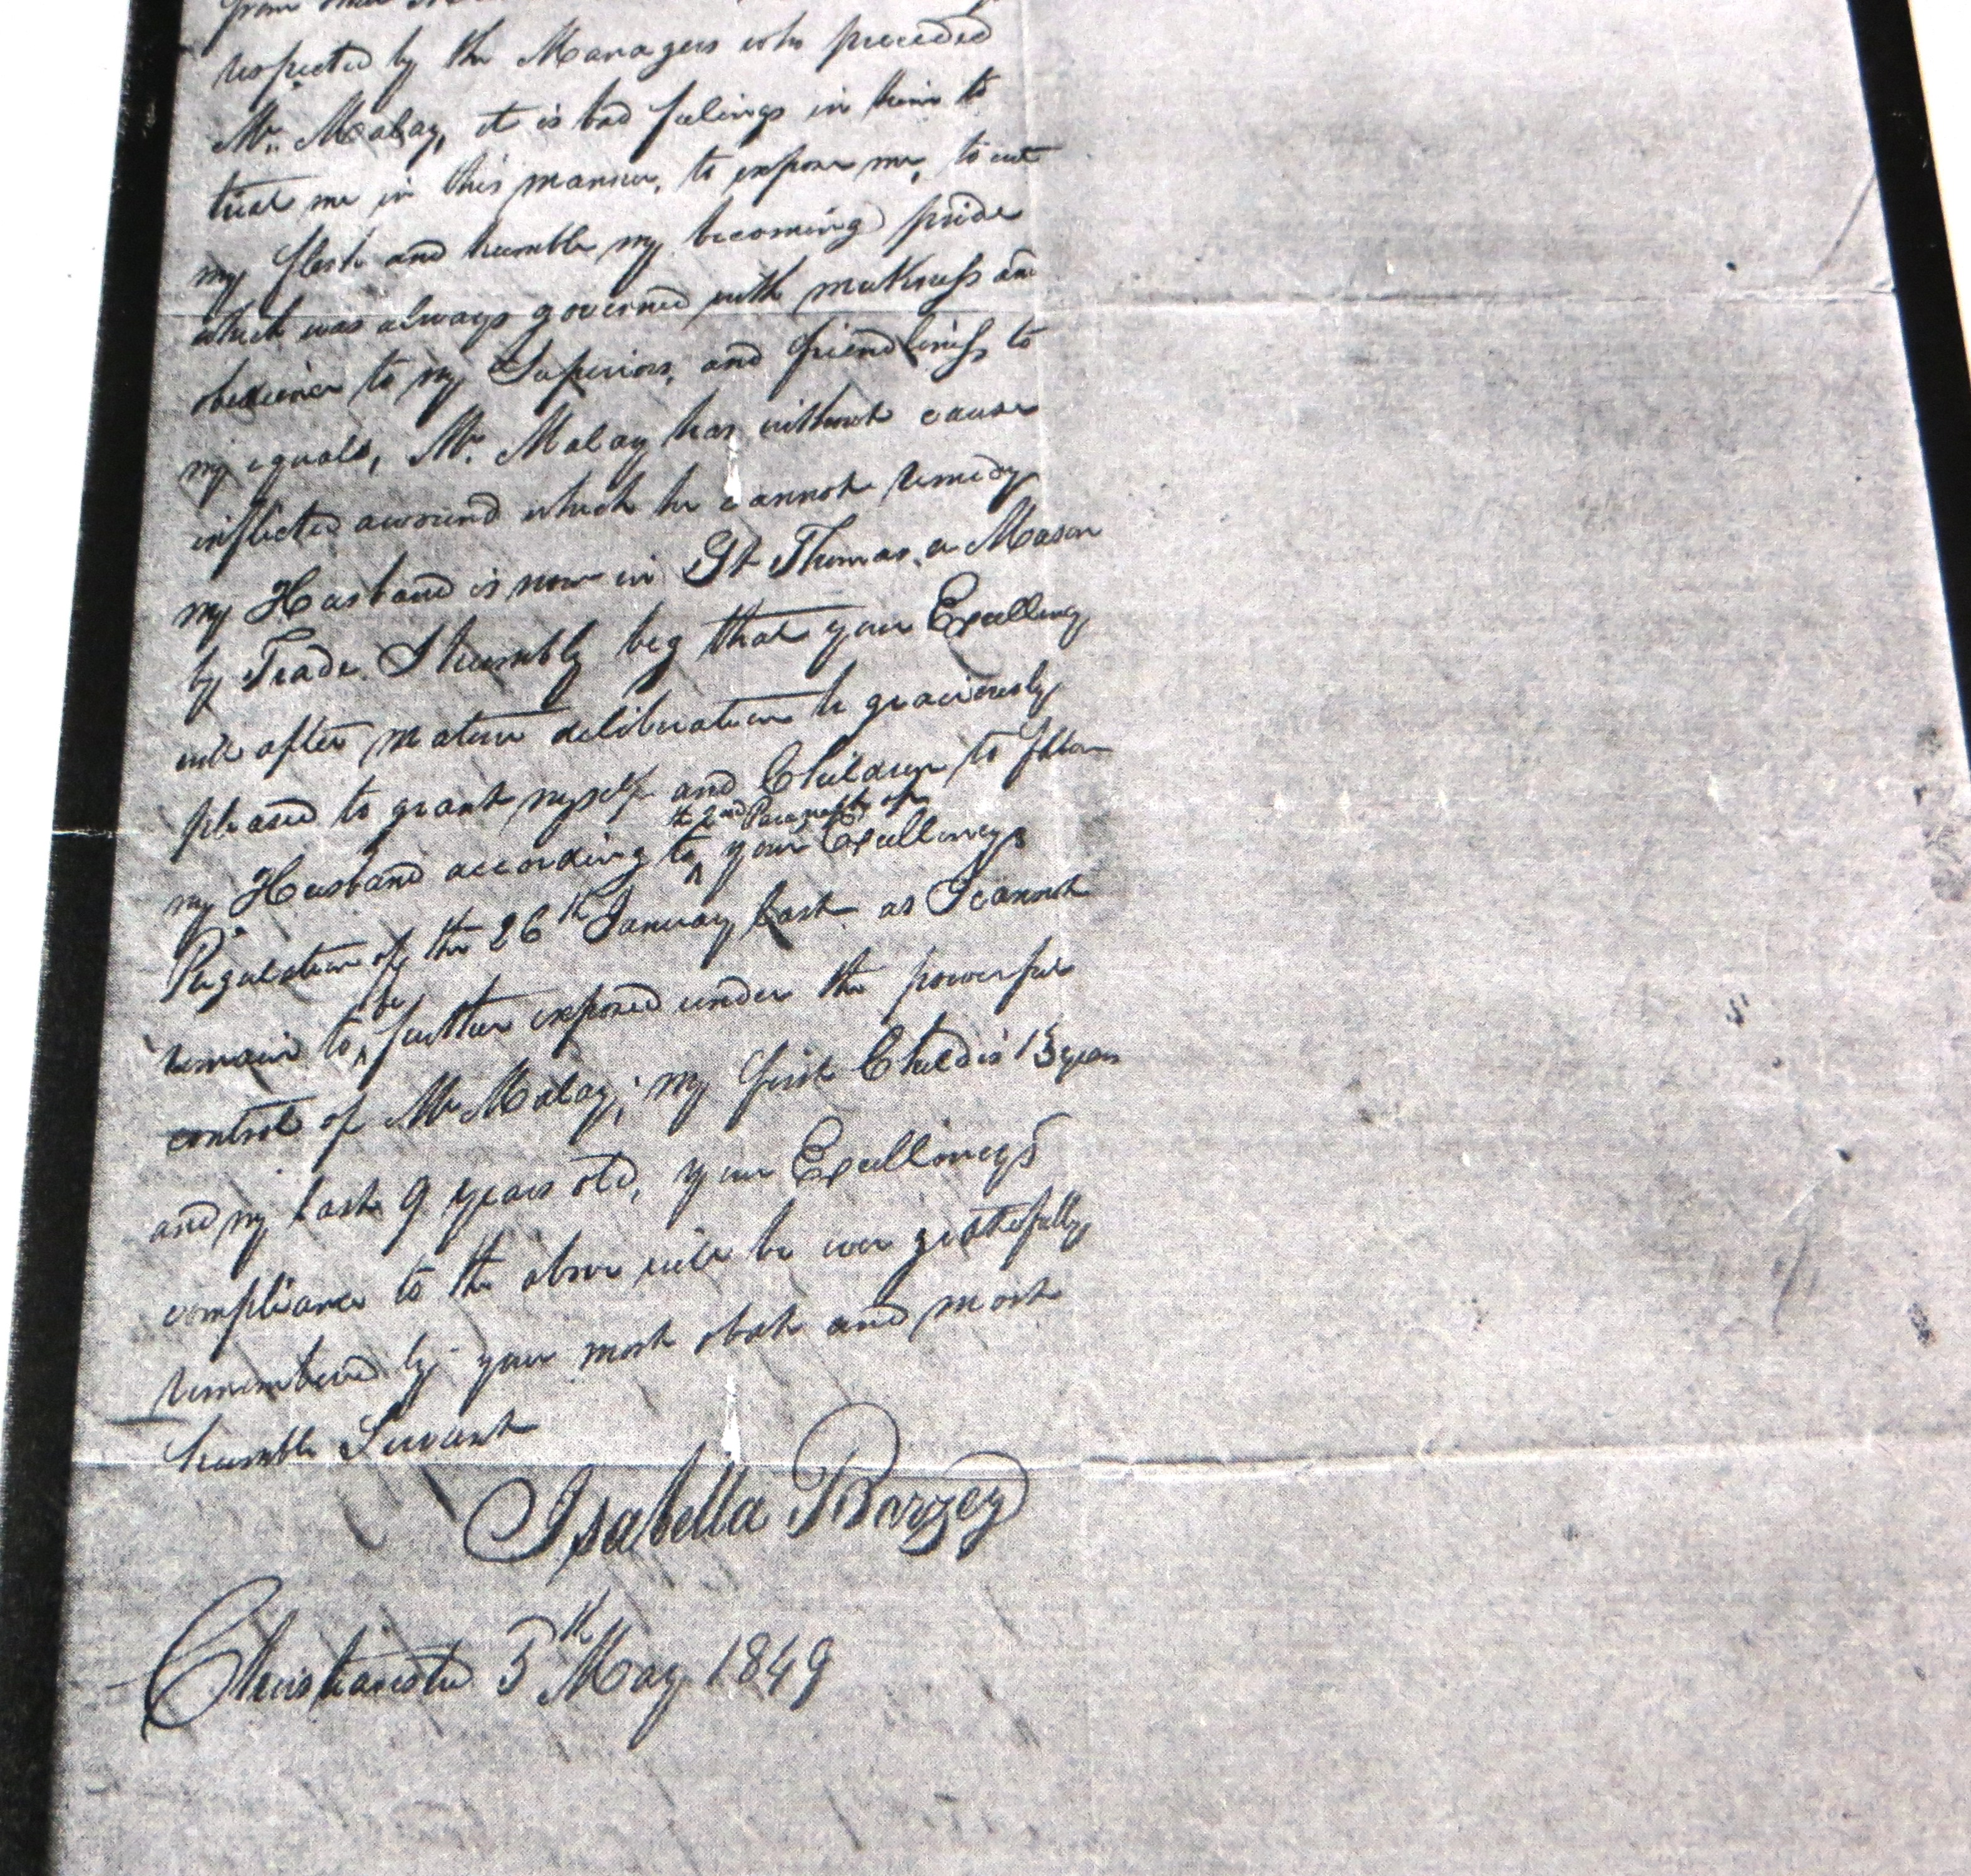 from
respected by the Managers who preceded
Mr. Malay, it is bad feelings in him to
treat me in this manner, to expose me, to cut
my flesh and humble my becoming pride
which was always governed with meekness and
obedience to my Superiors, and friendliness to
my equals, Mr. Malay has without cause
inflicted awound which he cannot remedy
my Husband is now in St Thomas, a Mason
by Trade. I humbly beg that your Excellency
will after mature deliberation be graciously
pleased to grant myself and Children to follow
the 2nd Paragraph of
my Husband according to ^ your Excellencys
Regulation of the 26th January last as I cannot
be
remain to ^ further exposed under the powerful
control of Mr Malay; my first Child is 13 years
and my last 9 years old, your Excellencys
compliance to the above will be ever gratefully
remembered by your most obdt and most
humble Servant
Isabella Barzey
Christiansted 5th May 1849